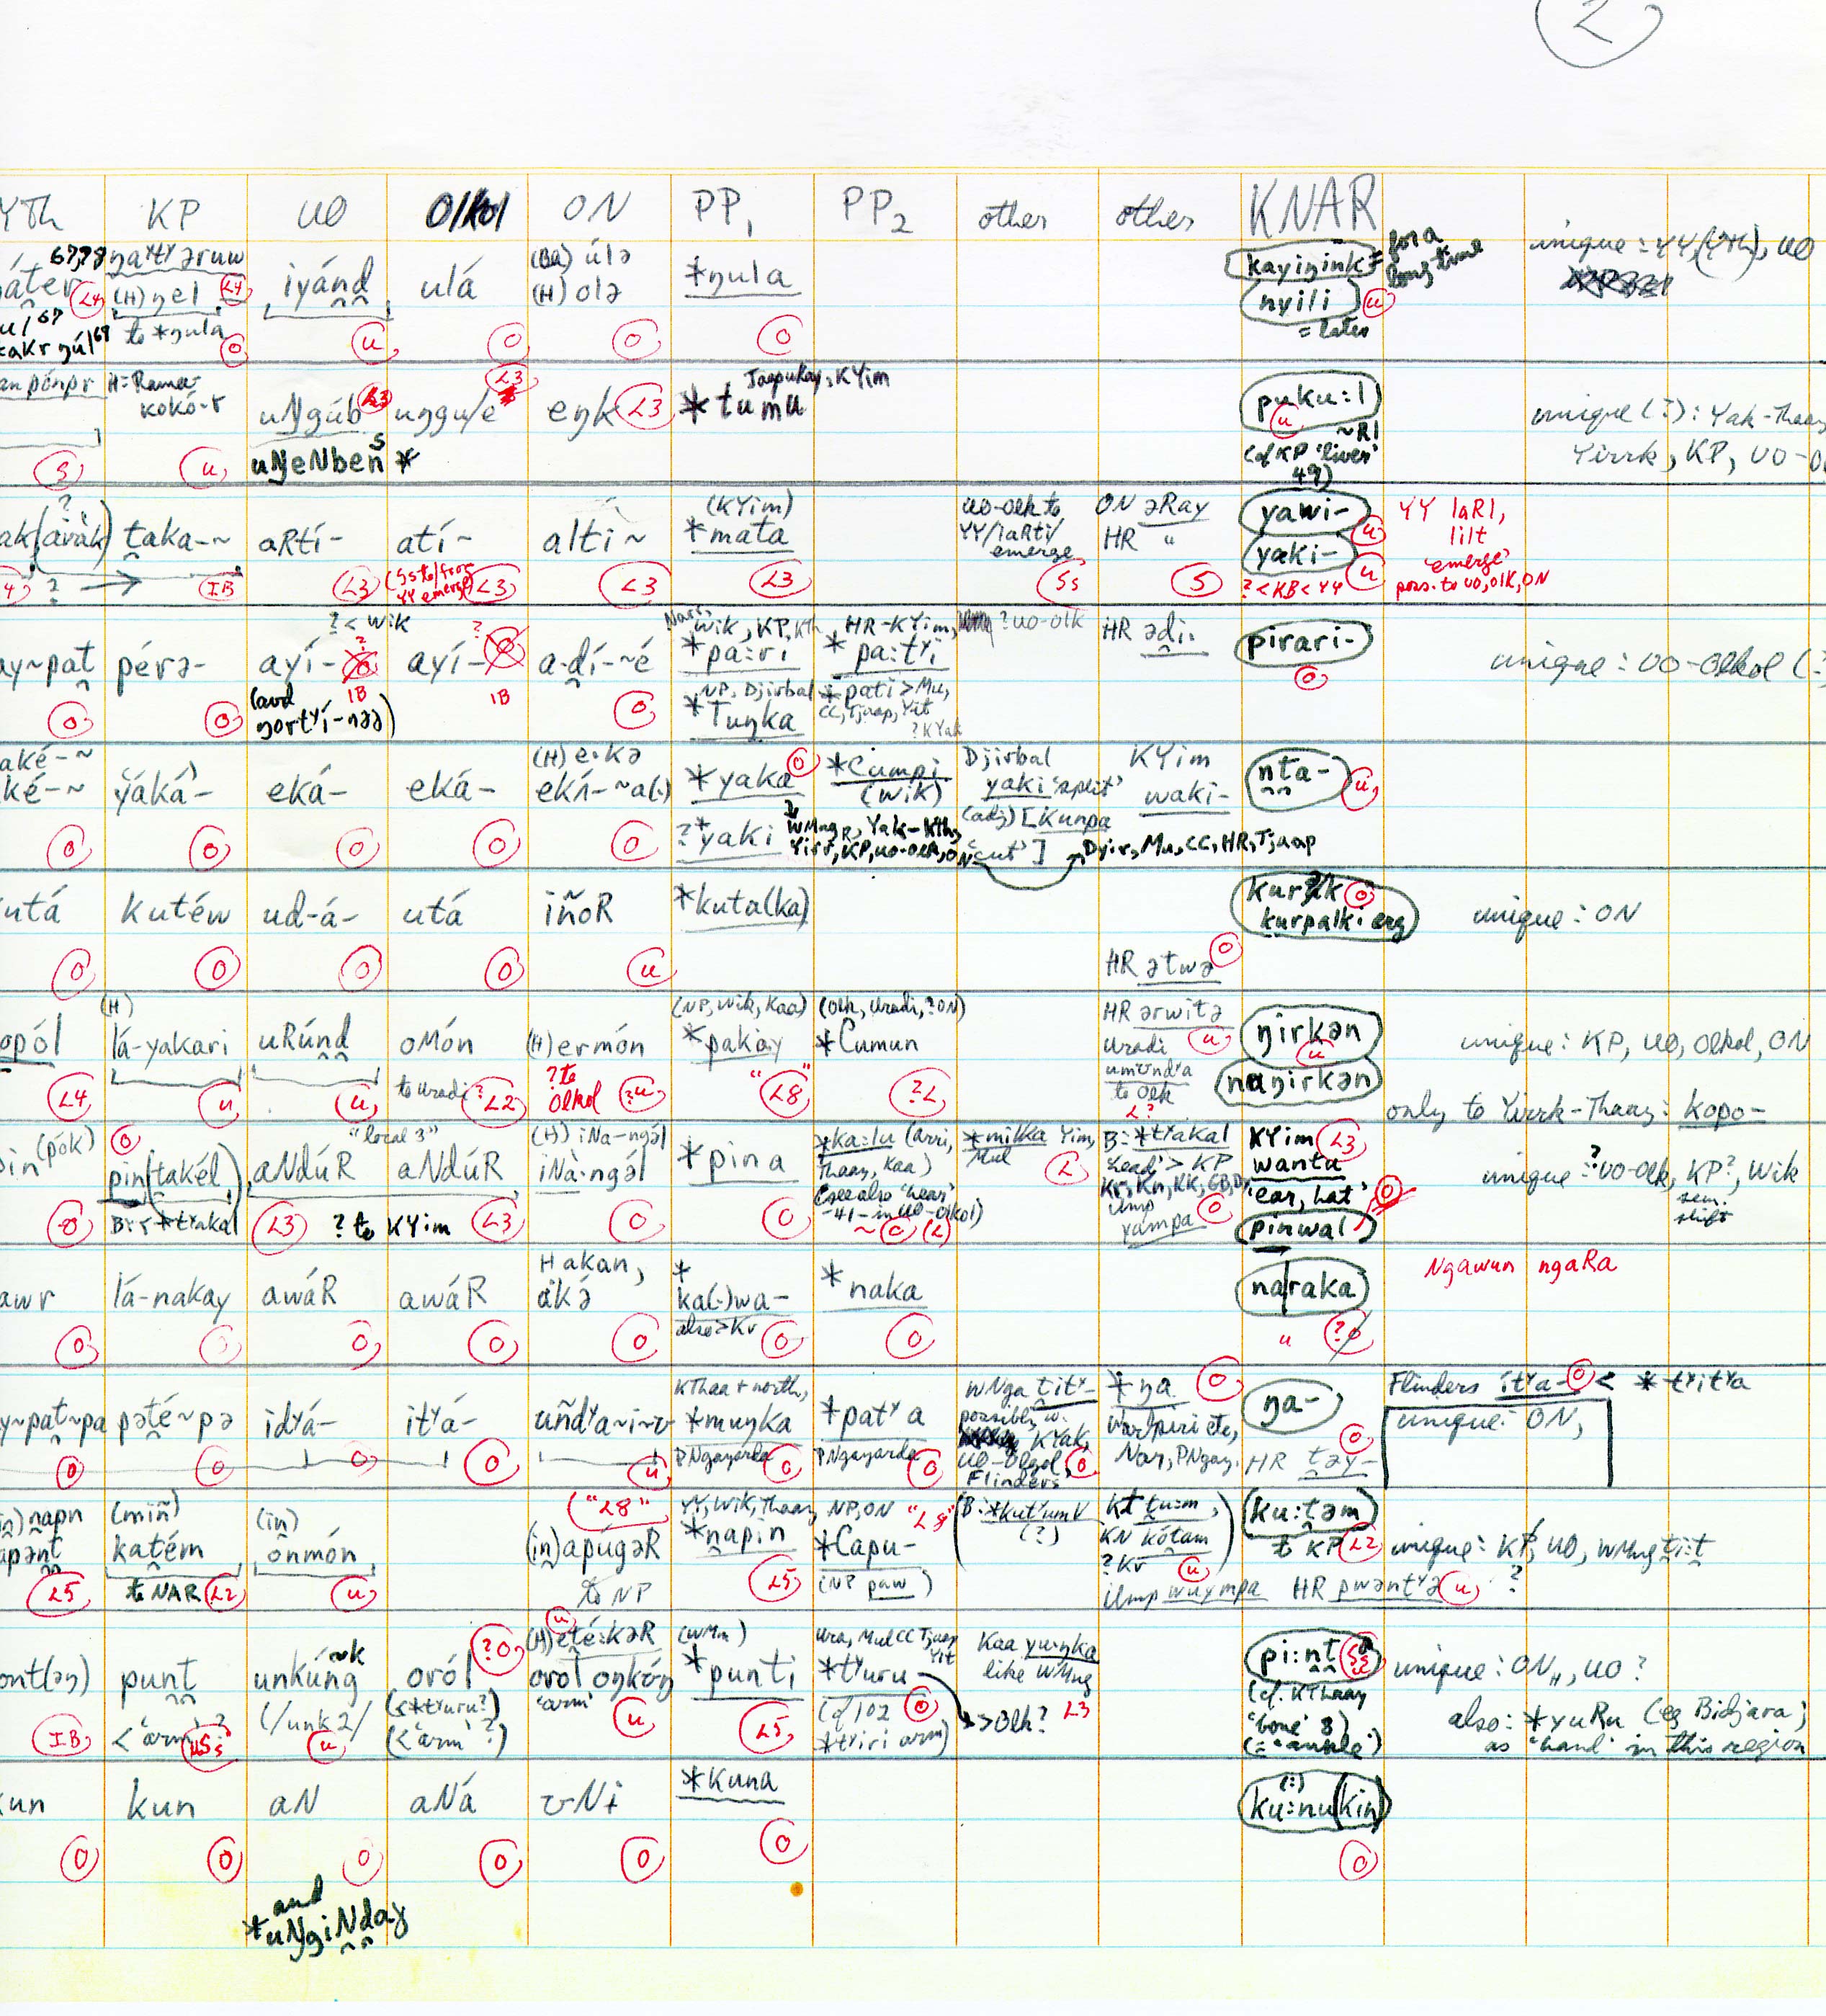 2
YTh KP UO Olkol ON PP₁ PP₂ other other KNAR
67,78 ŋaʎtʸəruw (Ba) úlə kayiŋink = for a long time unique: YY(YTh), UO
áter L4 (H) ŋel L4 iyánd ulá (H) olə *ŋula nyili u
67 to *ŋula = later
ŋúl 69 0 u 0 0 0
pónpr H=Rama- L3 Jaapukay, KYim
kokó-r uNgúb L3 uŋgul e eŋk L3 *tumu puku:l unique(?): Yak-Thaay
u ~Rl Yirrk, KP, UO-
S u uŊeNben * (cf KP 'liver' 49)
? (KYim) UO-Olk to ON əRay yawi- u YY laRl,
(aràk) taka-~ aRtí- atí~ altí~ *mata YY/laRti/ HR " yaki- u lilt
emerge 'emerge'
4 ? → IB L3 (Ss to/from YY emerge) L3 L3 L3 Ss S ?<KB<YY poss. to UO, Olk, ON
?<wik ? Narr, wik, KP, Kth HR-KYim, ?UO-Olk HR ədi.
ay~pat pérə- ayí- ayí- a-dí-~é *pa:ri *pa:tʸi pirari- unique: UO-Olkol (?)
0 0 (and IB IB 0 NP, Djirbal *pati > Mu, 0
ŋortʸí-nəə) *Tuŋka CC, Tjaap, Yit
?KYak
aké-~ (H) e.kə *yaka 0 *Cumpi Djirbal KYim nta- u
ké-~ yáká- eká- eká- eká-~a(.) (Wik) yaki 'split' waki-
0 0 0 0 0 ?*yaki WMngR, Yak-Kth, (adj) [Kunpa
Yirr, KP, UO-Olk, ON 'cut'] Dyir, Mu, CC, HR, Tjaap
utá kutéw ud-á- utá iñoR *kuta(ka) kurpalki erg unique: ON
0 0 0 0 u HR ətwə 0
(H) (NP, Wik, Kaa) (Olk, Uradi, ?ON) HR ərwitə
opól lá-yakari uRúnd oMón (H) ermón *pakay *Cumun Uradi u ŋirkən unique: KP, UO, Olkol, ON
L4 u u to Uradi ?L2 ?to Olkol ?u "L8" ?L to Olk L? naŋirkən only to Yirrk-Thaay: kopo-
(pók) 0 "local 3" (H) iNa-ngəl *ka:lu (Arri, *milka Yim, B: *tʸakal KYim L3
pin(takél) aNdúR aNdúR iNà-ngál *pina Thaay, Kaa) Mul 'head' > KP wanta unique: ?UO-Olk, KP?, Wik
B: < *tʸakal (see also 'hear' L 'ear, hat' 0 sem. shift
0 L3 ? to KYim L3 0 0 -41- in UO-Olkol) Ump yampa 0 pinwal
~0 (L)
Hakan, * Ngawun ngaRa
awr lá-nakay awáR awáR ákə ka(.)wa- *naka na|raka
0 0 0 0 0 also>Kr 0 0 " ?0
KThaa + north, WNga titʸ- *ŋa 0 Flinders itʸa- 0 < *tʸitʸa
y~pat~pa pəté~pə idʸá- itʸá- uñdʸa~i~ʊ *muŋka *patʸa possibly w. Warlpiri etc, ŋa- unique: ON,
0 0 0 0 u PNgayarda 0 PNgayarda 0 KYak, Nar, PNgay. 0
UO-Olgol, 0 HR təy-
Flinders
napn (miñ) (in) ("L8") YY, Wik, Thaay, NP, ON "L8" (B: *kutʸumV Kt tu:m, ku:təm
katém ónmón (in)apúgəR *napin *Capu- (?) KN kótam to KP L2 unique: KP, UO, WMng ti:t
L5 to NAR L2 u to NP L5 (NP paw) ?Kr u ?
Ump wuympa HR pwəntʸə u
u
~k ?0 (H) eté:kəR (WMn) Ura, Mul CC Tjaap Yit Kaa yu:ŋka pi:nt
ont(əŋ) punt unkúng oról orol oŋkóŋ *punti *tʸuru like WMng unique: ONH, UO?
<'arm'? (/unk2/ (<*tʸuru?) 'arm' (cf 102 0 >>Olk? L3 (cf. KThaay 'bone' 8) also: *yuRu (eg Bidjara)
IB u (<'arm'?) u L5 *tʸiri arm) (= 'ankle') as 'hand' in this region
kun kun aN aNá ʊNi *kuna ku:nu(kin)
0 0 0 0 0 0 0
and
*uŊgiNday